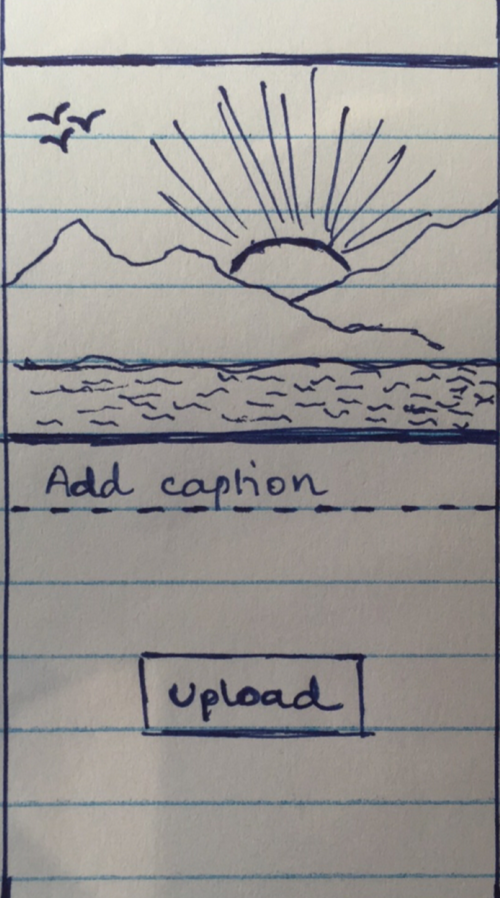 Add caption
Upload